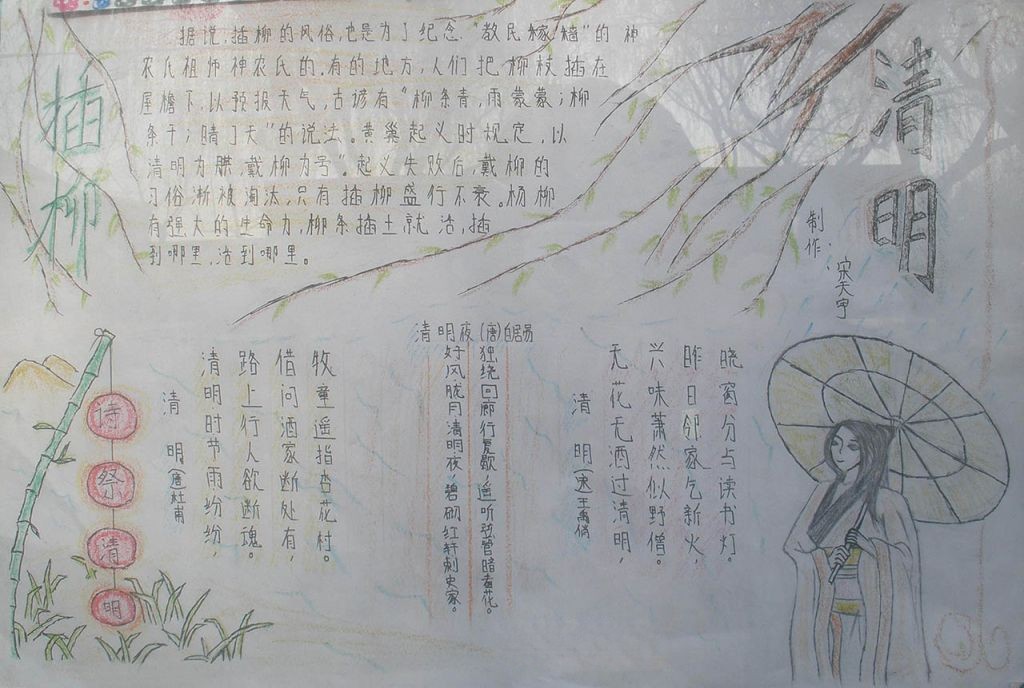 清明
制作：宋天宇
插柳
据说,插柳的风俗,也是为了纪念"教民稼穑"的神
农氏祖师神农氏的,有的地方,人们把柳枝插在
屋檐下,以预报天气,古谚有"柳条青,雨蒙蒙;柳
条干;晴了天"的说法。黄巢起义时规定,以
清明为期,戴柳为号"。起义失败后,戴柳的
习俗渐被淘汰,只有插柳盛行不衰。杨柳
有强大的生命力,柳条插土就活,插
到哪里,活到哪里。
诗祭清明
清明(唐)杜甫
清明时节雨纷纷,
路上行人欲断魂。
借问酒家断处有,
牧童遥指杏花村。
清明夜(唐)白居易
好风胧月清明夜,碧砌红轩刺史家。
独绕回廊行复歇,遥听弦管暗看花。
清明(宋)王禹偁
无花无酒过清明,
兴味萧然似野僧。
昨日邻家乞新火,
晓窗分与读书灯。